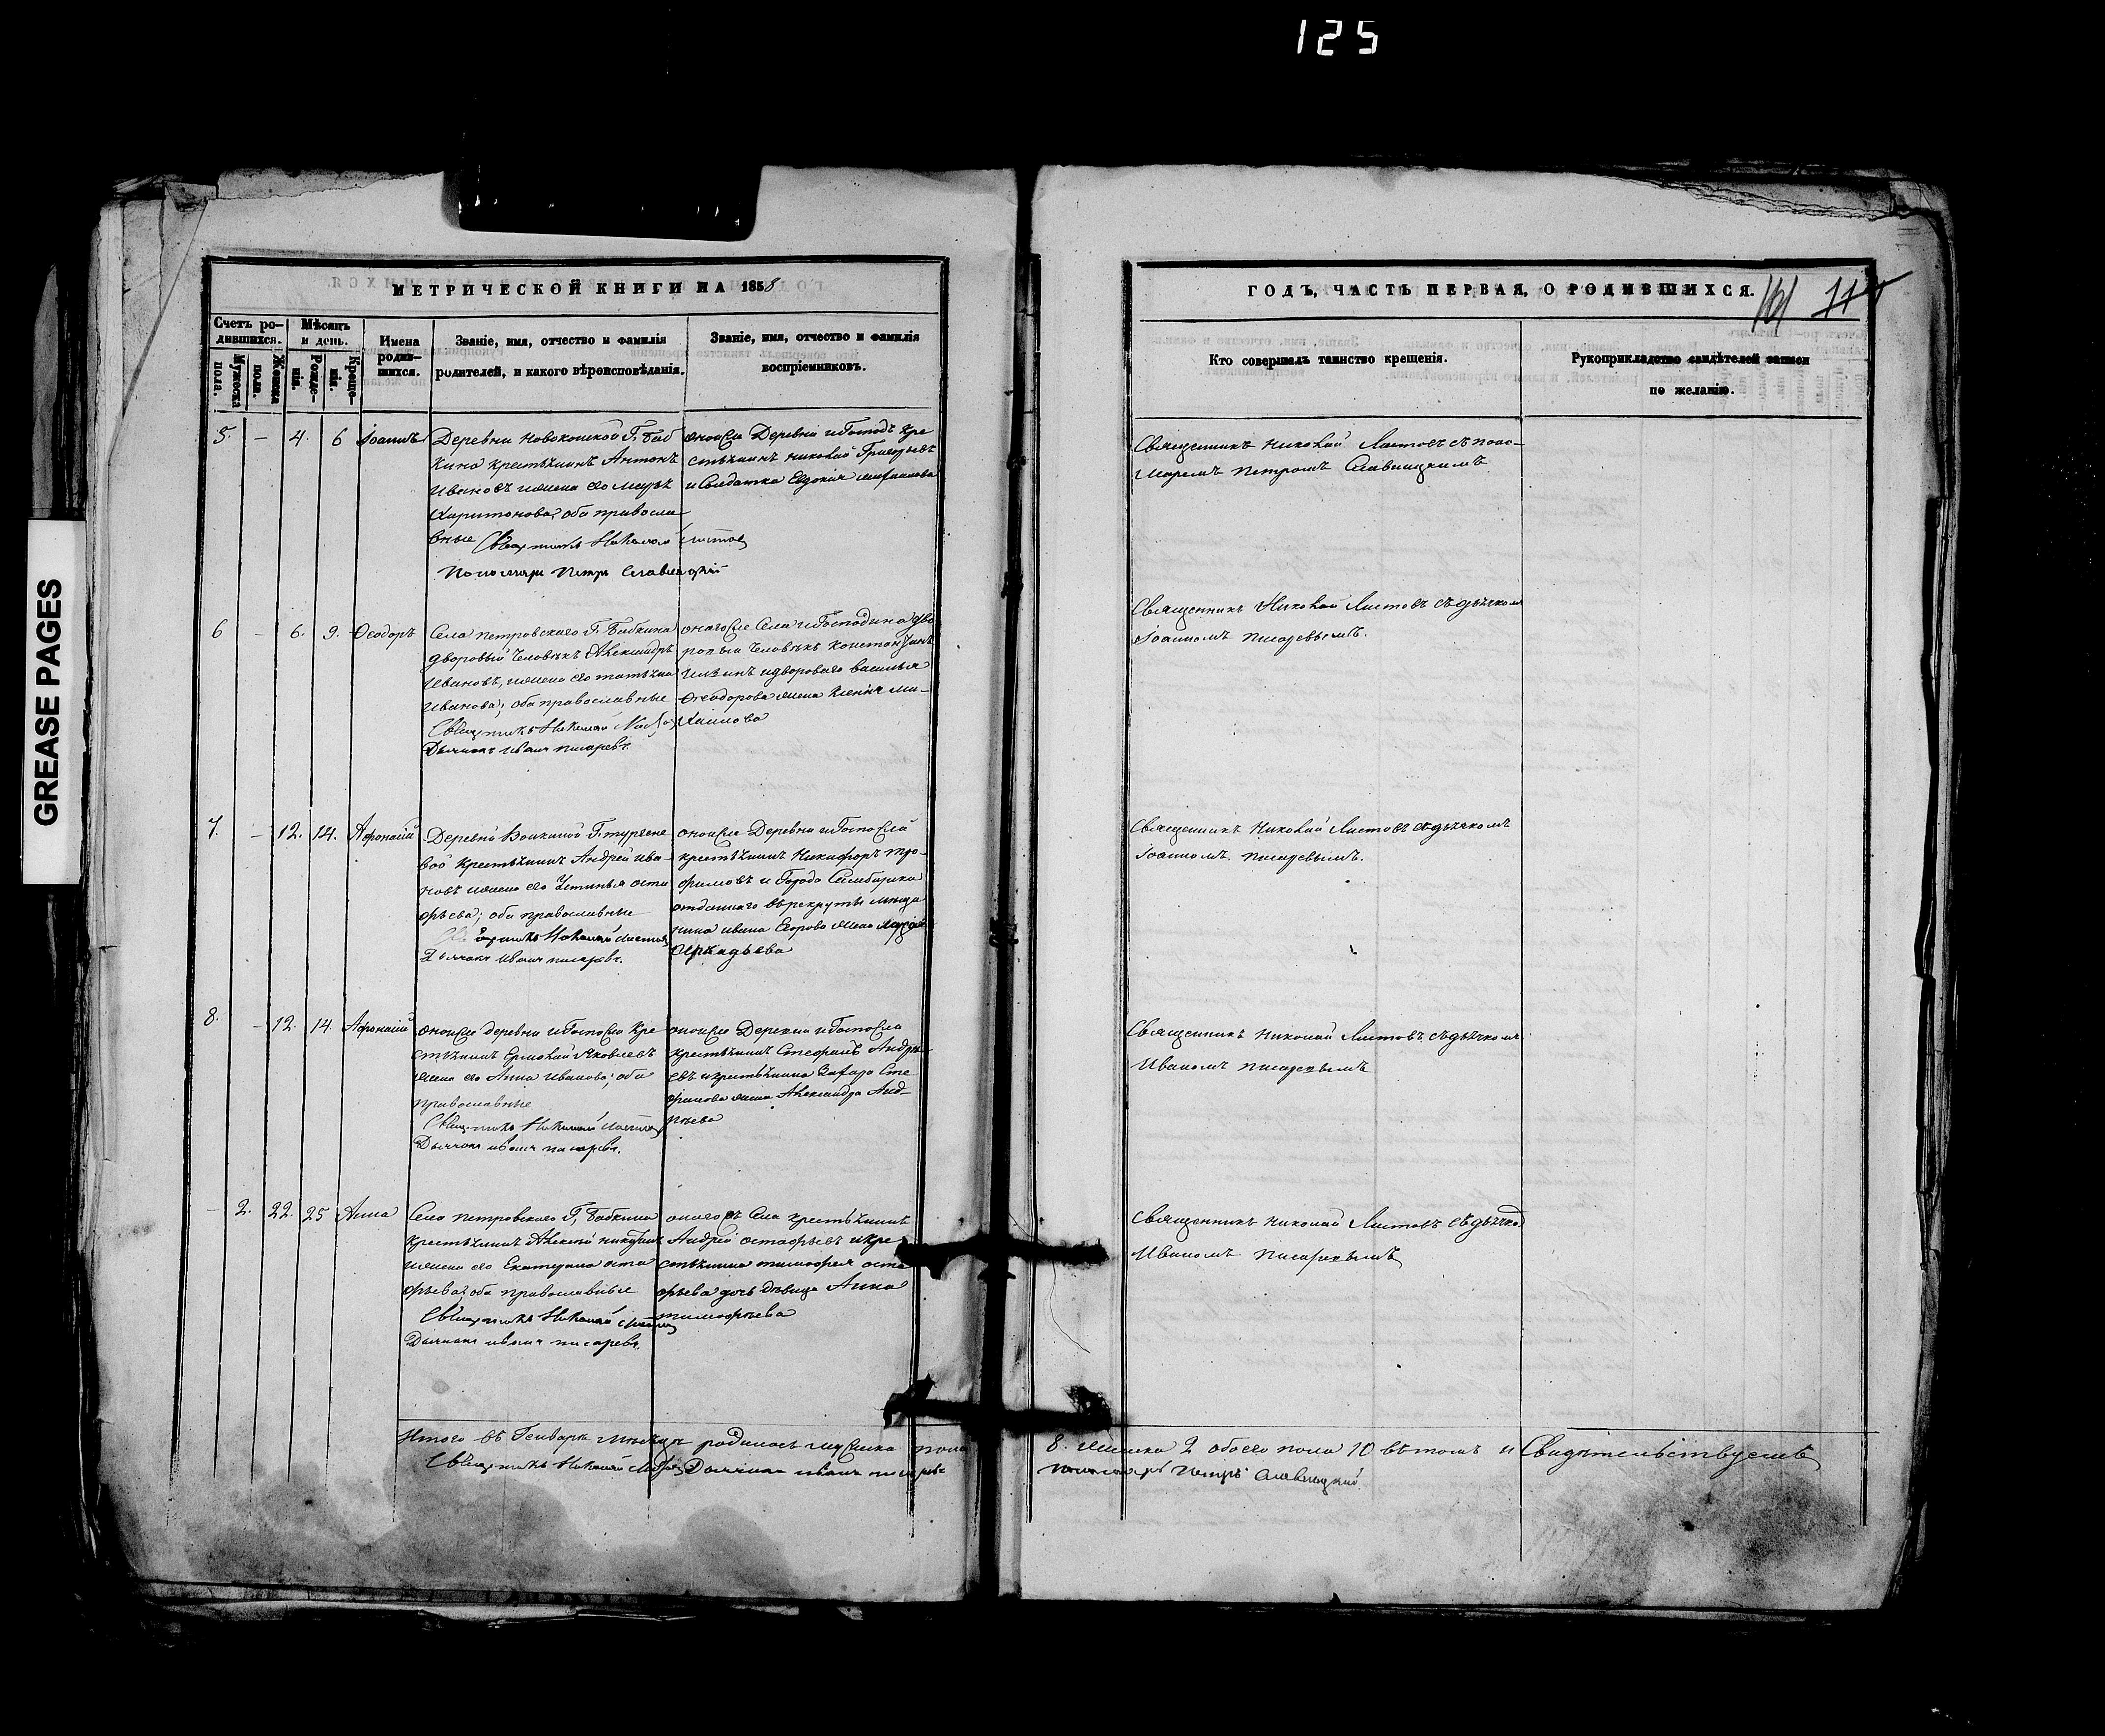 125
GREASE PAGES
МЕТРИЧЕСКОЙ КНИГИ НА 1858
Счетъ ро-
дившихся.
Мужеска
пола.
Женска
пола.
Мѣсяцъ
и день.
Рожде-
нія.
Креще-
нія.
Имена
родив-
шихся.
Званіе, имя, отчество и фамилія
родителей, и какого вѣроисповѣданія.
Званіе, имя, отчество и фамилія
воспріемниковъ.
5. — 4. 6 Іоаннъ
Деревни Г. Баб
кина крестьянинъ Антонъ
Ивановъ и жена его Марья
Харитонова, оба правосла-
вные
Пономарь Петръ Славницкій
оной же Деревни и Господъ кре
стьянинъ Николай Григорьевъ
и Солдатка Евдокия
6 — 6. 9. Ѳеодоръ
Села Петровскаго Г. Бабкина
дворовый человѣкъ Александръ
Ивановъ, и жена его Татьяна
Иванова; оба православные
Дьячокъ Иванъ Писаревъ.
онаго же Села и Господина дво
ровый человѣкъ
и двороваго Василья
Ѳеодорова жена Ми-
хаилова
7. — 12. 14. Афонасій
Деревни Г. Тургене
вой Крестьянинъ Андрей Ива-
новъ и жена его Устинья Оста
фьева; оба православные
Дьячокъ Иванъ Писаревъ.
оной же Деревни и Госпожи
крестьянинъ Никифоръ Тро-
фимовъ и Города Симбирска
отданнаго въ рекруты мѣща
нина Ивана Егорова жена
8. — 12. 14. Афонасій
оной же деревни и Госпожи Кре
стьянинъ Ермолай Яковлевъ
жена его Анна Иванова; оба
православные
Дьячокъ Иванъ Писаревъ.
оной же Деревни и Госпожи
крестьянинъ Стефанъ Андре
евъ и крестьянина Захара Сте
фанова жена Александра Анд-
реева
— 2. 22. 25 Анна
Села Петровскаго Г. Бабкина
крестьянинъ Алексей
и жена его Екатерина Оста
фьева; оба православные
Дьячокъ Иванъ Писаревъ.
онаго же Села крестьянинъ
Андрей Остафьевъ и кре
стьянина Тимофея Оста
фьева дочь дѣвица Анна
Тимофеева
Итого въ Генварѣ мѣсяцѣ родилось мужеска пола
Дьячокъ Иванъ Писаревъ
ГОДЪ, ЧАСТЬ ПЕРВАЯ, О РОДИВШИХСЯ.
Кто совершалъ таинство крещенія.
Рукоприкладство свидѣтелей записи
по желанію.
Священникъ Николай Листовъ съ поно-
маремъ Петромъ Славницкимъ
Священникъ Николай Листовъ съ дьячкомъ
Іоанномъ Писаревымъ.
Священникъ Николай Листовъ съ дьячкомъ
Іоанномъ Писаревымъ.
Священникъ Николай Листовъ съ дьячкомъ
Иваномъ Писаревымъ
Священникъ Николай Листовъ съ дьячко
Иваномъ Писаревымъ
8. женска 2 обоего пола 10 въ томъ и Свидѣтельствуемъ
пономарь Петръ Славницкій